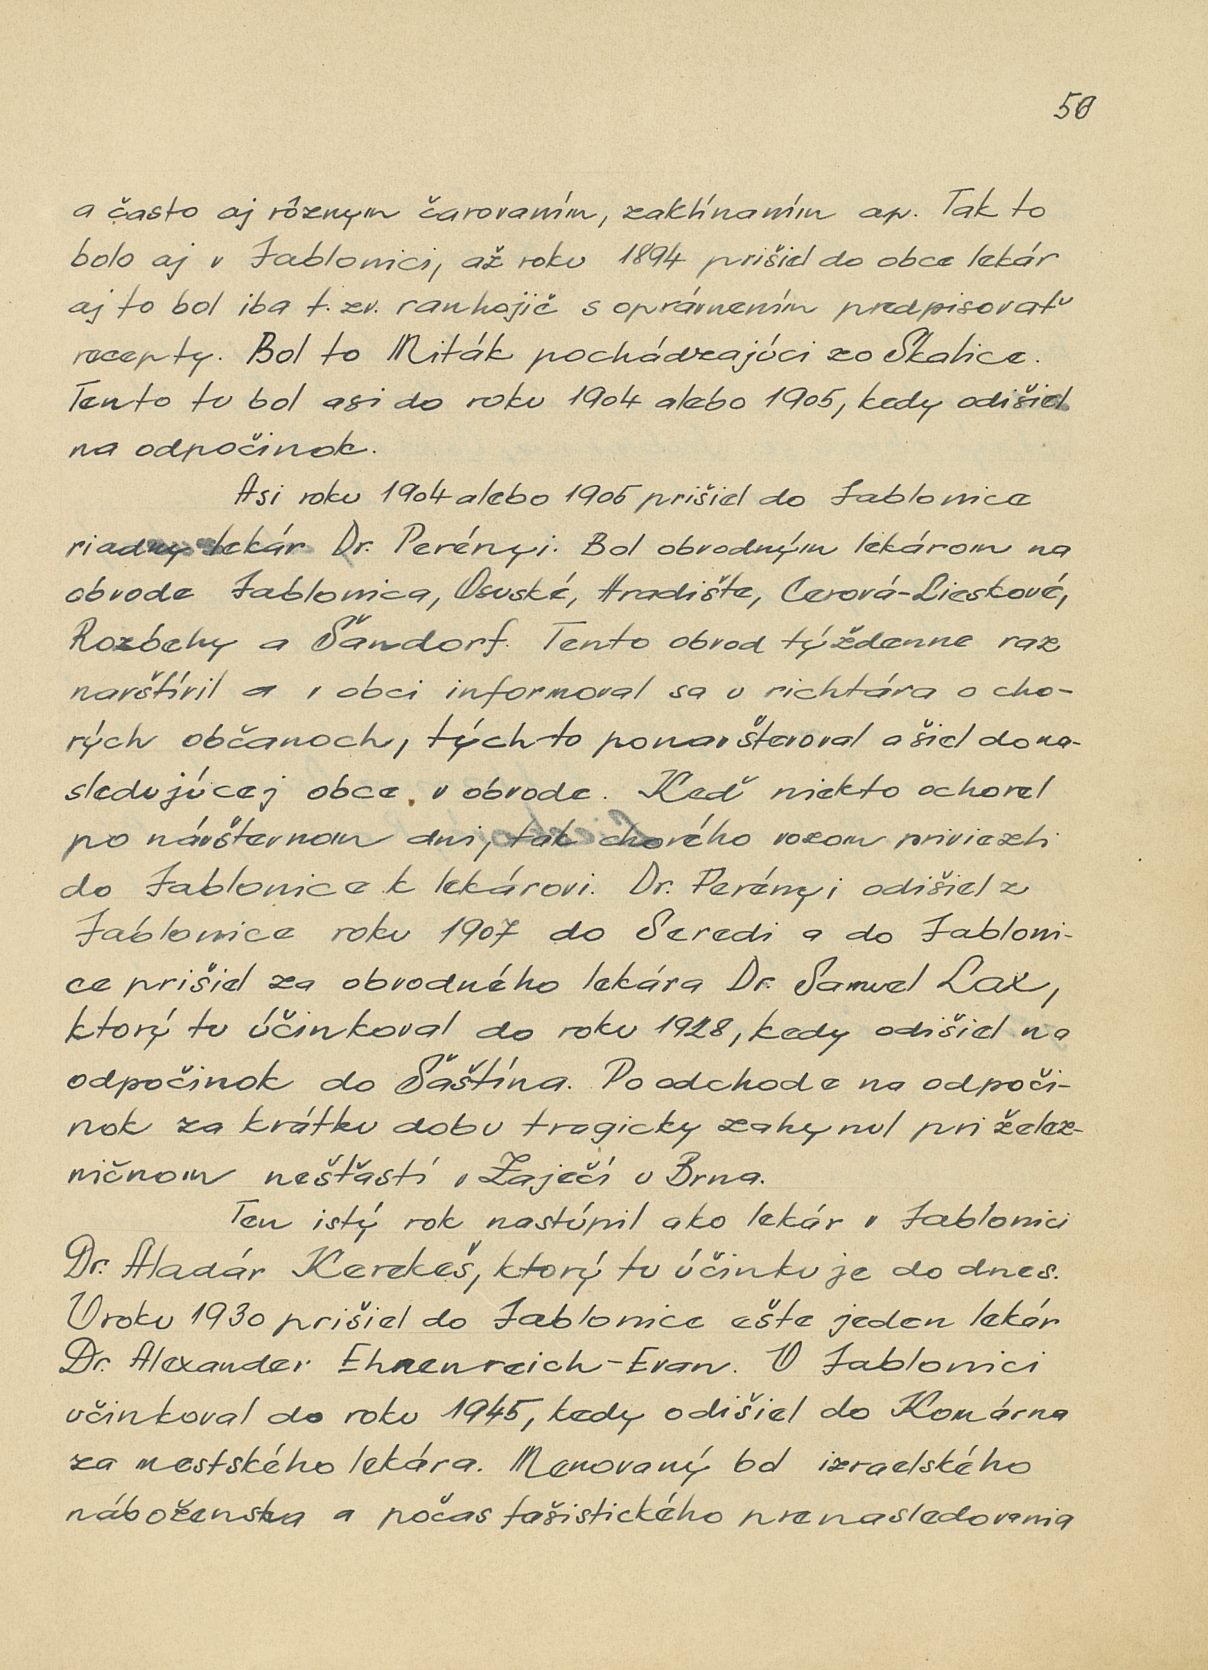 50
a často aj rôznym čarovaním, zaklínaním ap. Tak to
bolo aj v Jablonici, až roku 1894 prišiel do obce lekár
aj to bol iba t. zv. ranhojič s oprávnením predpisovať
recepty. Bol to Miták pochádzajúci zo Skalice.
Tento tu bol asi do roku 1904 alebo 1905, kedy odišiel
na odpočinok.
Asi roku 1904 alebo 1905 prišiel do Jablonice
riadny lekár Dr. Perényi. Bol obvodným lekárom na
obvode Jablonica, Osuské, Hradište, Cerová-Lieskové,
Rozbehy a Šándorf. Tento obvod týždenne raz
navštívil a v obci informoval sa u richtára o cho-
rých občanoch, týchto ponavšteroval a šiel do na-
sledujúcej obce v obvode. Keď niekto ochorel
po návštevnom dni, tak chorého vozom priviezli
do Jablonice k lekárovi. Dr. Perényi odišiel z
Jablonice roku 1907 do Seredi a do Jabloni-
ce prišiel za obvodného lekára Dr. Samuel Lax,
ktorý tu účinkoval do roku 1928, kedy odišiel na
odpočinok do Šaštína. Po odchode na odpoči-
nok za krátku dobu tragicky zahynul pri želez-
ničnom nešťastí v Zaječí u Brna.
Ten istý rok nastúpil ako lekár v Jablonici
Dr. Aladár Kerekeš, ktorý tu účinkuje do dnes.
V roku 1930 prišiel do Jablonice ešte jeden lekár
Dr. Alexander Ehrenreich-Evan. V Jablonici
učinkoval do roku 1945, kedy odišiel do Komárna
za mestského lekára. Menovaný bol izraelského
náboženstva a počas fašistického prenasledovania